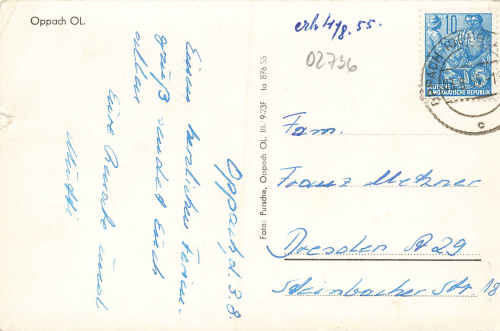 Oppach OL.
erh. 4/8. 55.
02736
10
DEUTSCHE
DEMOKRATISCHE REPUBLIK
OPPACH
c
Oppach, d. 3. 8.
Einen herzlichen Ferien-
gruß sendet Euch
allen
Eure Renate und
Mutti
Foto: Pursche, Oppach OL. III-9-23F Io 876 55
Fam.
Franz Metzner
Dresden A 29
Steinbacher Str. 18